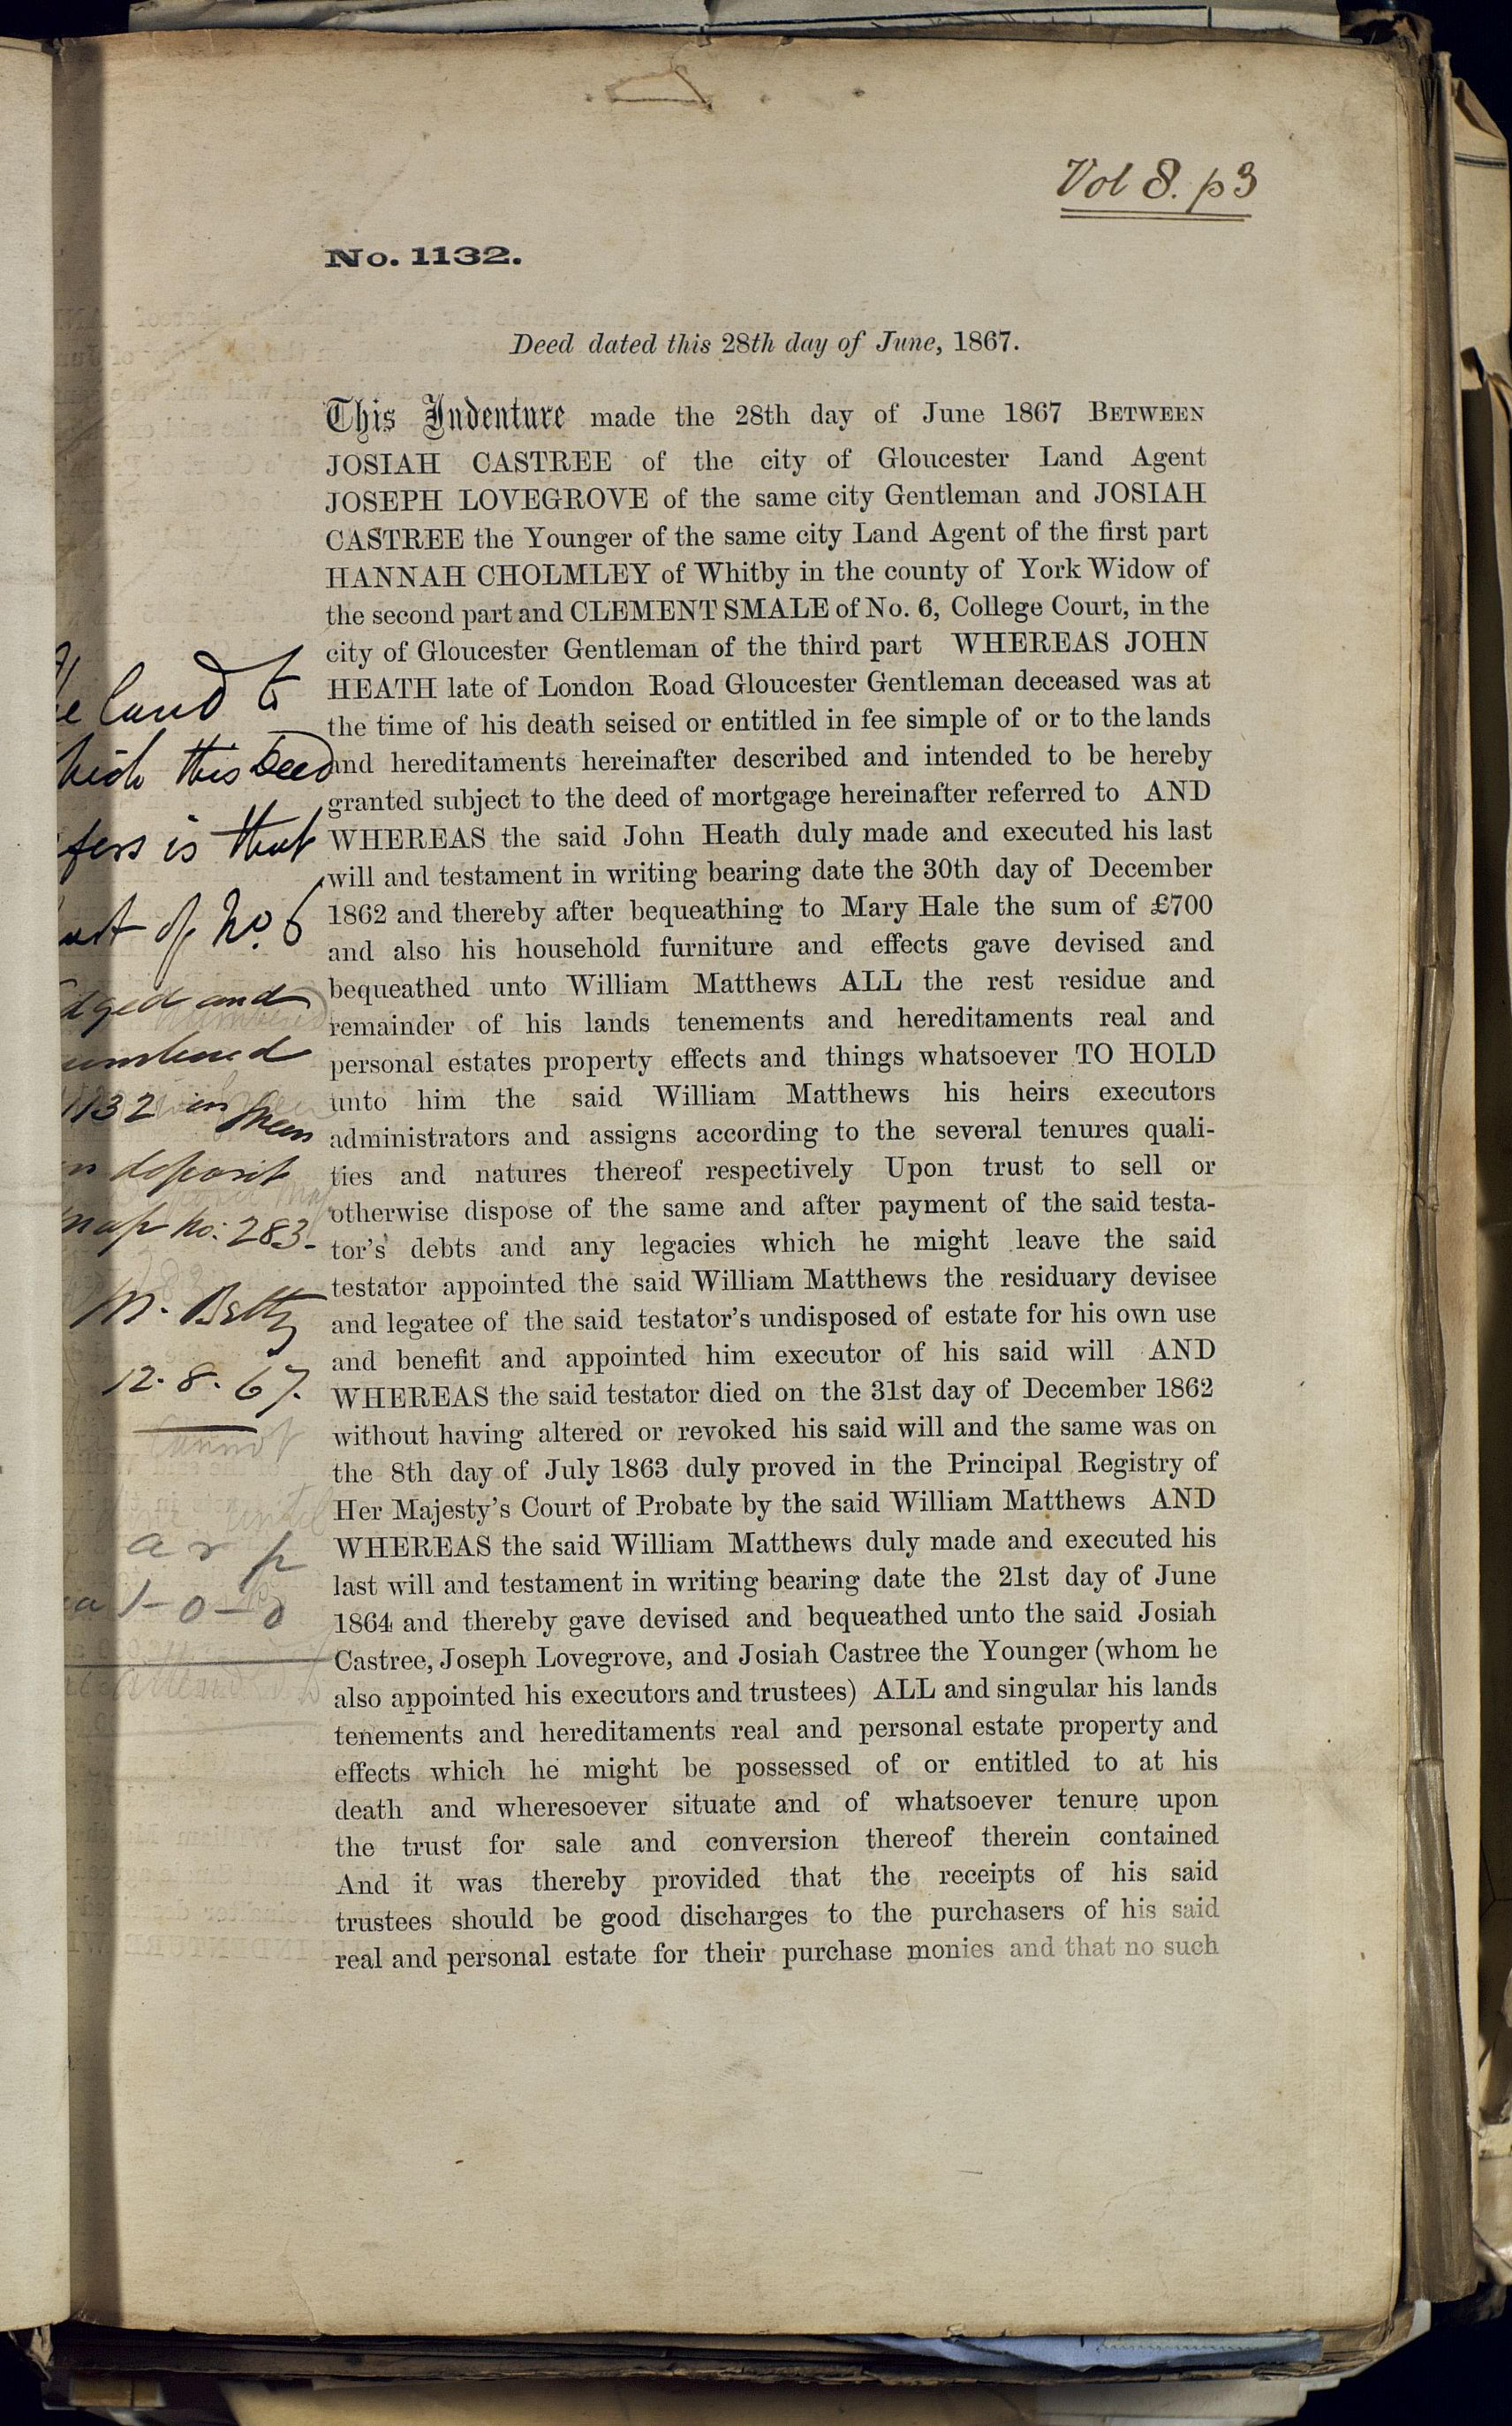 Vol 8. p3
No. 1132.
Deed dated this 28th day of June, 1867.
This Indenture made the 28th day of June 1867 BETWEEN
JOSIAH CASTREE of the city of Gloucester Land Agent
JOSEPH LOVEGROVE of the same city Gentleman and JOSIAH
CASTREE the Younger of the same city Land Agent of the first part
HANNAH CHOLMLEY of Whitby in the county of York Widow of
the second part and CLEMENT SMALE of No. 6, College Court, in the
city of Gloucester Gentleman of the third part WHEREAS JOHN
HEATH late of London Road Gloucester Gentleman deceased was at
the time of his death seised or entitled in fee simple of or to the lands
and hereditaments hereinafter described and intended to be hereby
granted subject to the deed of mortgage hereinafter referred to AND
WHEREAS the said John Heath duly made and executed his last
will and testament in writing bearing date the 30th day of December
1862 and thereby after bequeathing to Mary Hale the sum of £700
and also his household furniture and effects gave devised and
bequeathed unto William Matthews ALL the rest residue and
remainder of his lands tenements and hereditaments real and
personal estates property effects and things whatsoever TO HOLD
unto him the said William Matthews his heirs executors
administrators and assigns according to the several tenures quali-
ties and natures thereof respectively Upon trust to sell or
otherwise dispose of the same and after payment of the said testa-
tor's debts and any legacies which he might leave the said
testator appointed the said William Matthews the residuary devisee
and legatee of the said testator's undisposed of estate for his own use
and benefit and appointed him executor of his said will AND
WHEREAS the said testator died on the 31st day of December 1862
without having altered or revoked his said will and the same was on
the 8th day of July 1863 duly proved in the Principal Registry of
Her Majesty's Court of Probate by the said William Matthews AND
WHEREAS the said William Matthews duly made and executed his
last will and testament in writing bearing date the 21st day of June
1864 and thereby gave devised and bequeathed unto the said Josiah
Castree, Joseph Lovegrove, and Josiah Castree the Younger (whom he
also appointed his executors and trustees) ALL and singular his lands
tenements and hereditaments real and personal estate property and
effects which he might be possessed of or entitled to at his
death and wheresoever situate and of whatsoever tenure upon
the trust for sale and conversion thereof therein contained
And it was thereby provided that the receipts of his said
trustees should be good discharges to the purchasers of his said
real and personal estate for their purchase monies and that no such
land to
this Deed
is that
of No. 6
and
1132 in
deposit
map No. 283-
12.8.67.
a r p
1-0-0